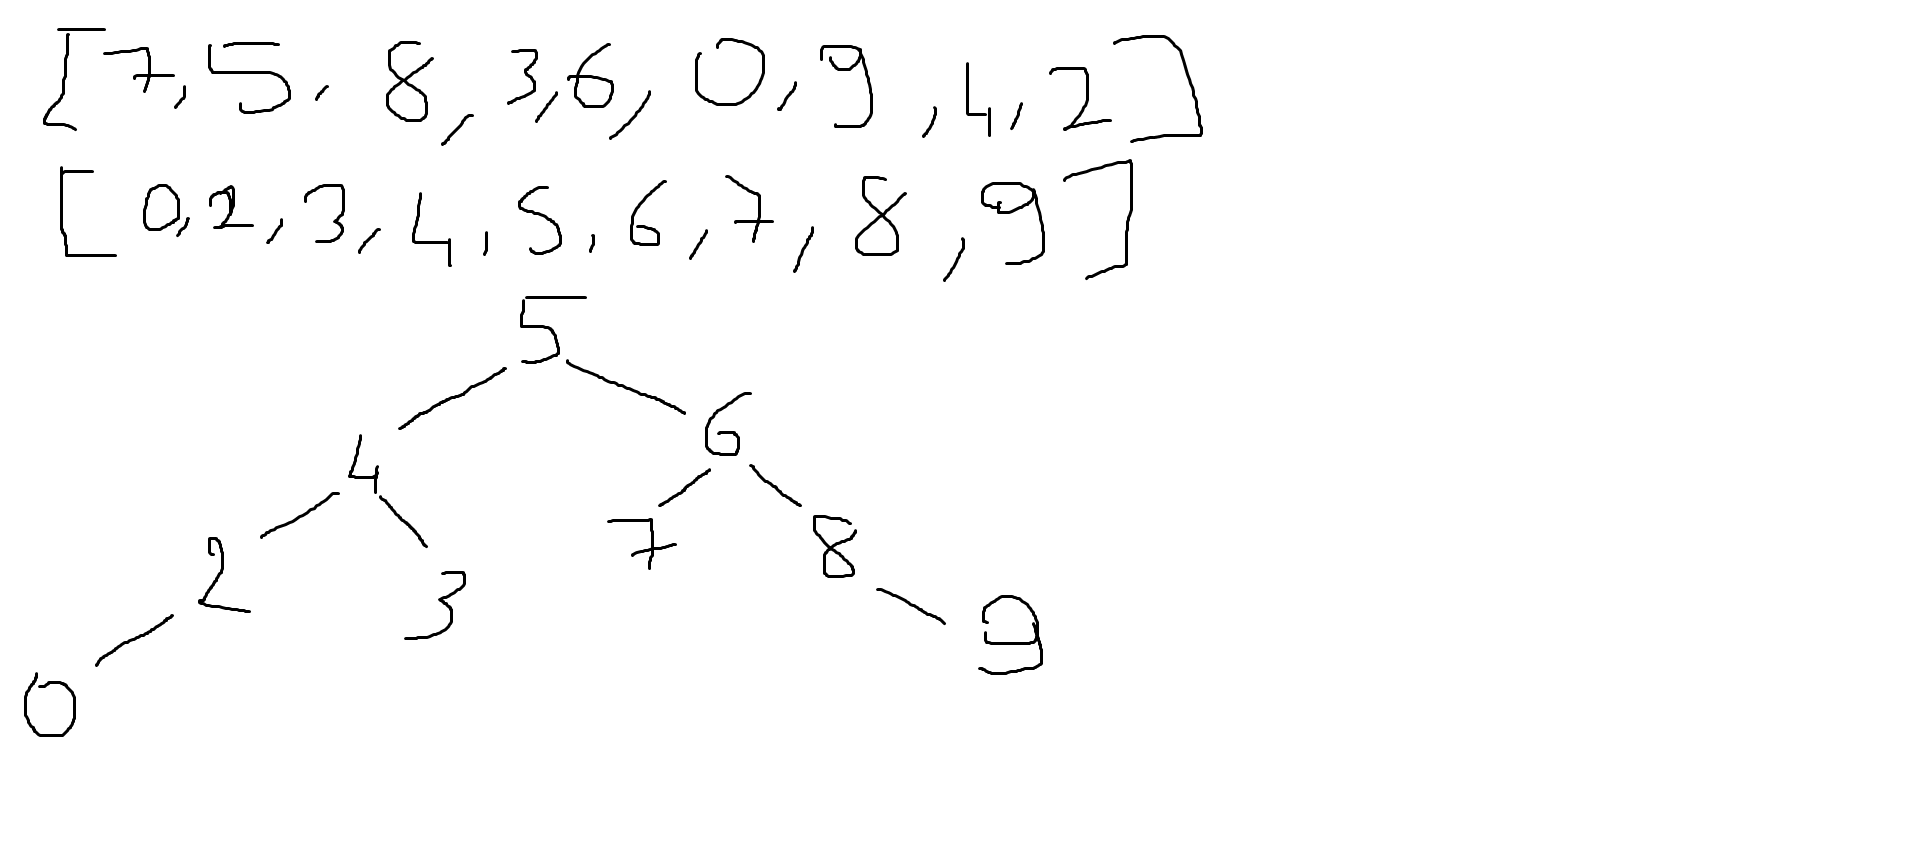 [7, 5, 8, 3, 6, 0, 9, 4, 2]
[0, 2, 3, 4, 5, 6, 7, 8, 9]
5
4 6
2 3 7 8
0 9